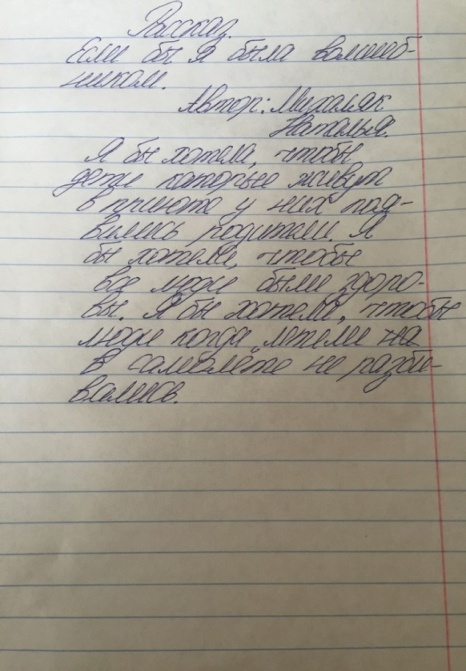 Рассказ.
Если бы я была волшеб-
ником.
Автор: Михаляк
Наталья.
Я бы хотела, чтобы
дети которые живут
в приюте у них поя-
вились родители. Я
бы хотела, чтобы
все люди были здоро-
вы. Я бы хотела, чтобы
люди когда летели на
в самолёте не разби-
вались.